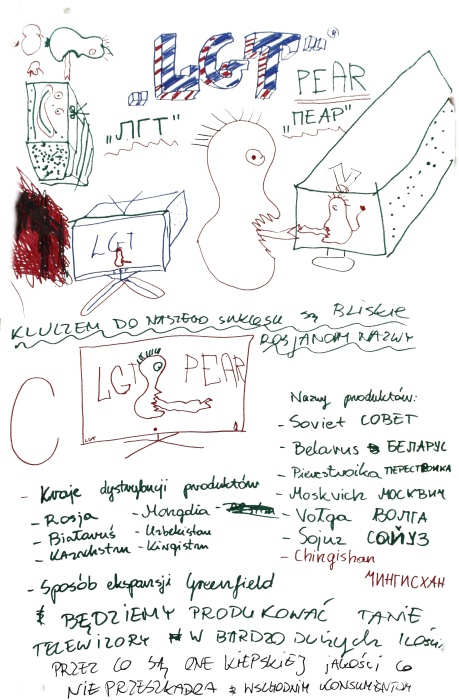 „LGT"®
PEAR
„ЛГТ"
„ПЕАР"
LGT
KLUCZEM DO NASZEGO SUKCESU SĄ BLISKIE
ROSJANOM NAZWY
LGT PEAR
Nazwy produktów:
- Soviet СОВЕТ
- Belarus БЕЛАРУС
- Pierestroika ПЕРЕСТРОИКА
- Moskvich МОСКВИЧ
- Vołga ВОЛГА
- Sojuz СОЙУЗ
- Chingishan
ЧИНГИСХАН
- Kraje dystrybucji produktów
- Rosja - Mongolia -
- Białoruś - Uzbekistan
- Kazachstan - Kirgistan
- Sposób ekspansji Greenfield
BĘDZIEMY PRODUKOWAĆ TANIE
TELEWIZORY W BARDZO DUŻYCH ILOŚCI
PRZEZ CO SĄ ONE KIEPSKIEJ JAKOŚCI CO
NIE PRZESZKADZA WSCHODNIM KONSUMENTOM